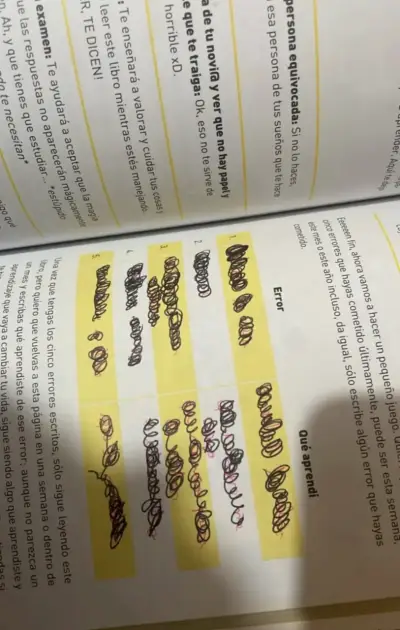 persona equivocada: Si no lo haces,
esa persona de tus sueños que te hará
a de tu novi@ y ver que no hay papel y
e que te traiga: Ok, eso no te sirve de
horrible xD.
: Te enseñará a valorar y cuidar tus cosas y
leer este libro mientras estés manejando.
R, TE DICEN!
examen: Te ayudará a aceptar que la magia
ue las respuestas no aparecerán mágicamente
Ah, y que tienes que estudiar... *estúpido
te necesitan*
Eeeeen fin, ahora vamos a hacer un pequeño juego.
cinco errores que hayas cometido últimamente, puede ser esta semana,
este mes o este año incluso, da igual, sólo escribe algún error que hayas
cometido.
Error
Qué aprendí
1.
2.
3.
4.
5.
Una vez que tengas los cinco errores escritos, sólo sigue leyendo este
libro, pero quiero que vuelvas a esta página en una semana o dentro de
un mes y escribas qué aprendiste de ese error; aunque no parezca un
aprendizaje que vaya a cambiar tu vida, sigue siendo algo que aprendiste y